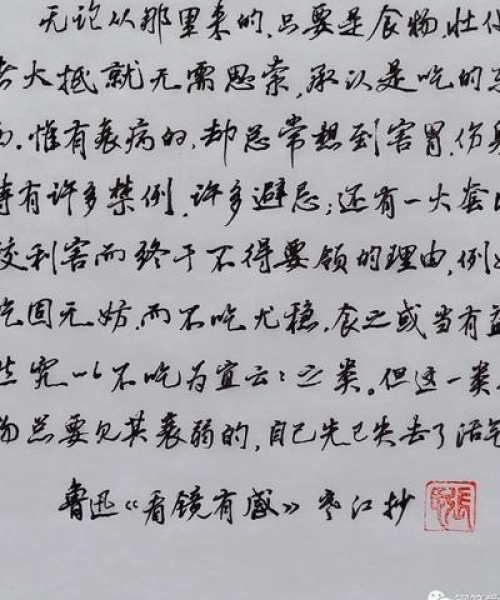 无论从那里来的,只要是食物,壮健
者大抵就无需思索,承认是吃的东
西.惟有衰病的,却总常想到害胃,伤身
特有许多禁例,许多避忌;还有一大套比
较利害而终于不得要领的理由,例如
吃固无妨,而不吃尤稳,食之或当有益
然究以不吃为宜云云之类。但这一类
物总要见其衰弱的,自己先已失去了活气
鲁迅《看镜有感》寒江抄